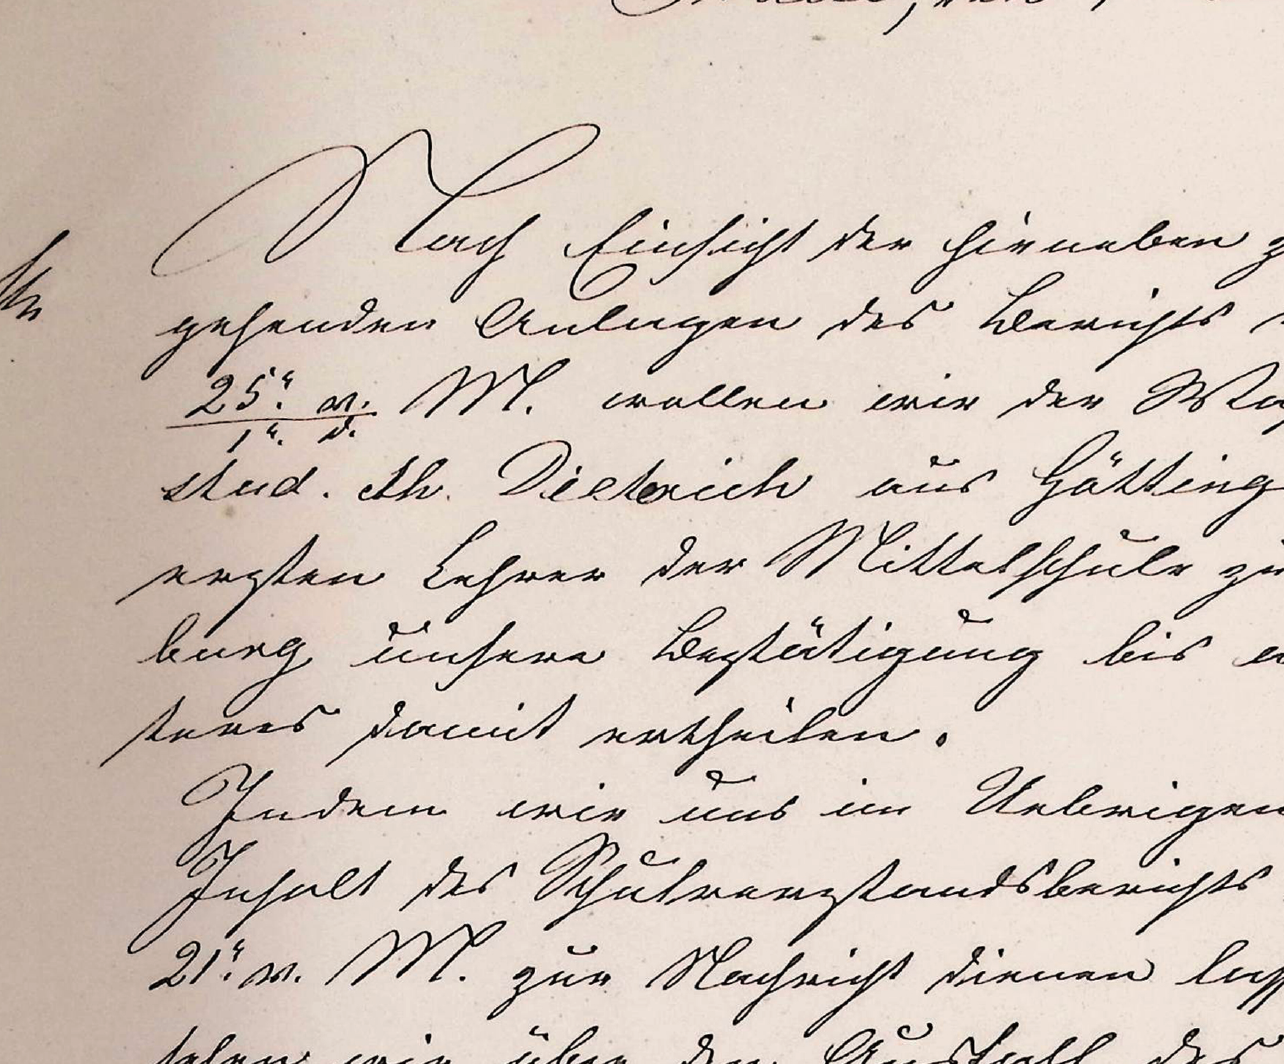 Nach Einsicht der hierneben
gehenden Anlagen des Berichts
25ᵗ. v. M. wollen wir der
1ᵗ. d.
stud. th. Dietrich aus Götting
ersten Lehrer der Mittelschule zu
burg unsere Bestätigung bis
teres damit ertheilen.
Indem wir uns im Uebrigen
Inhalt des Schulvorstandsberichts
21ᵗ. v. M. zur Nachricht dienen lass
sehen wir über den Ausfall des